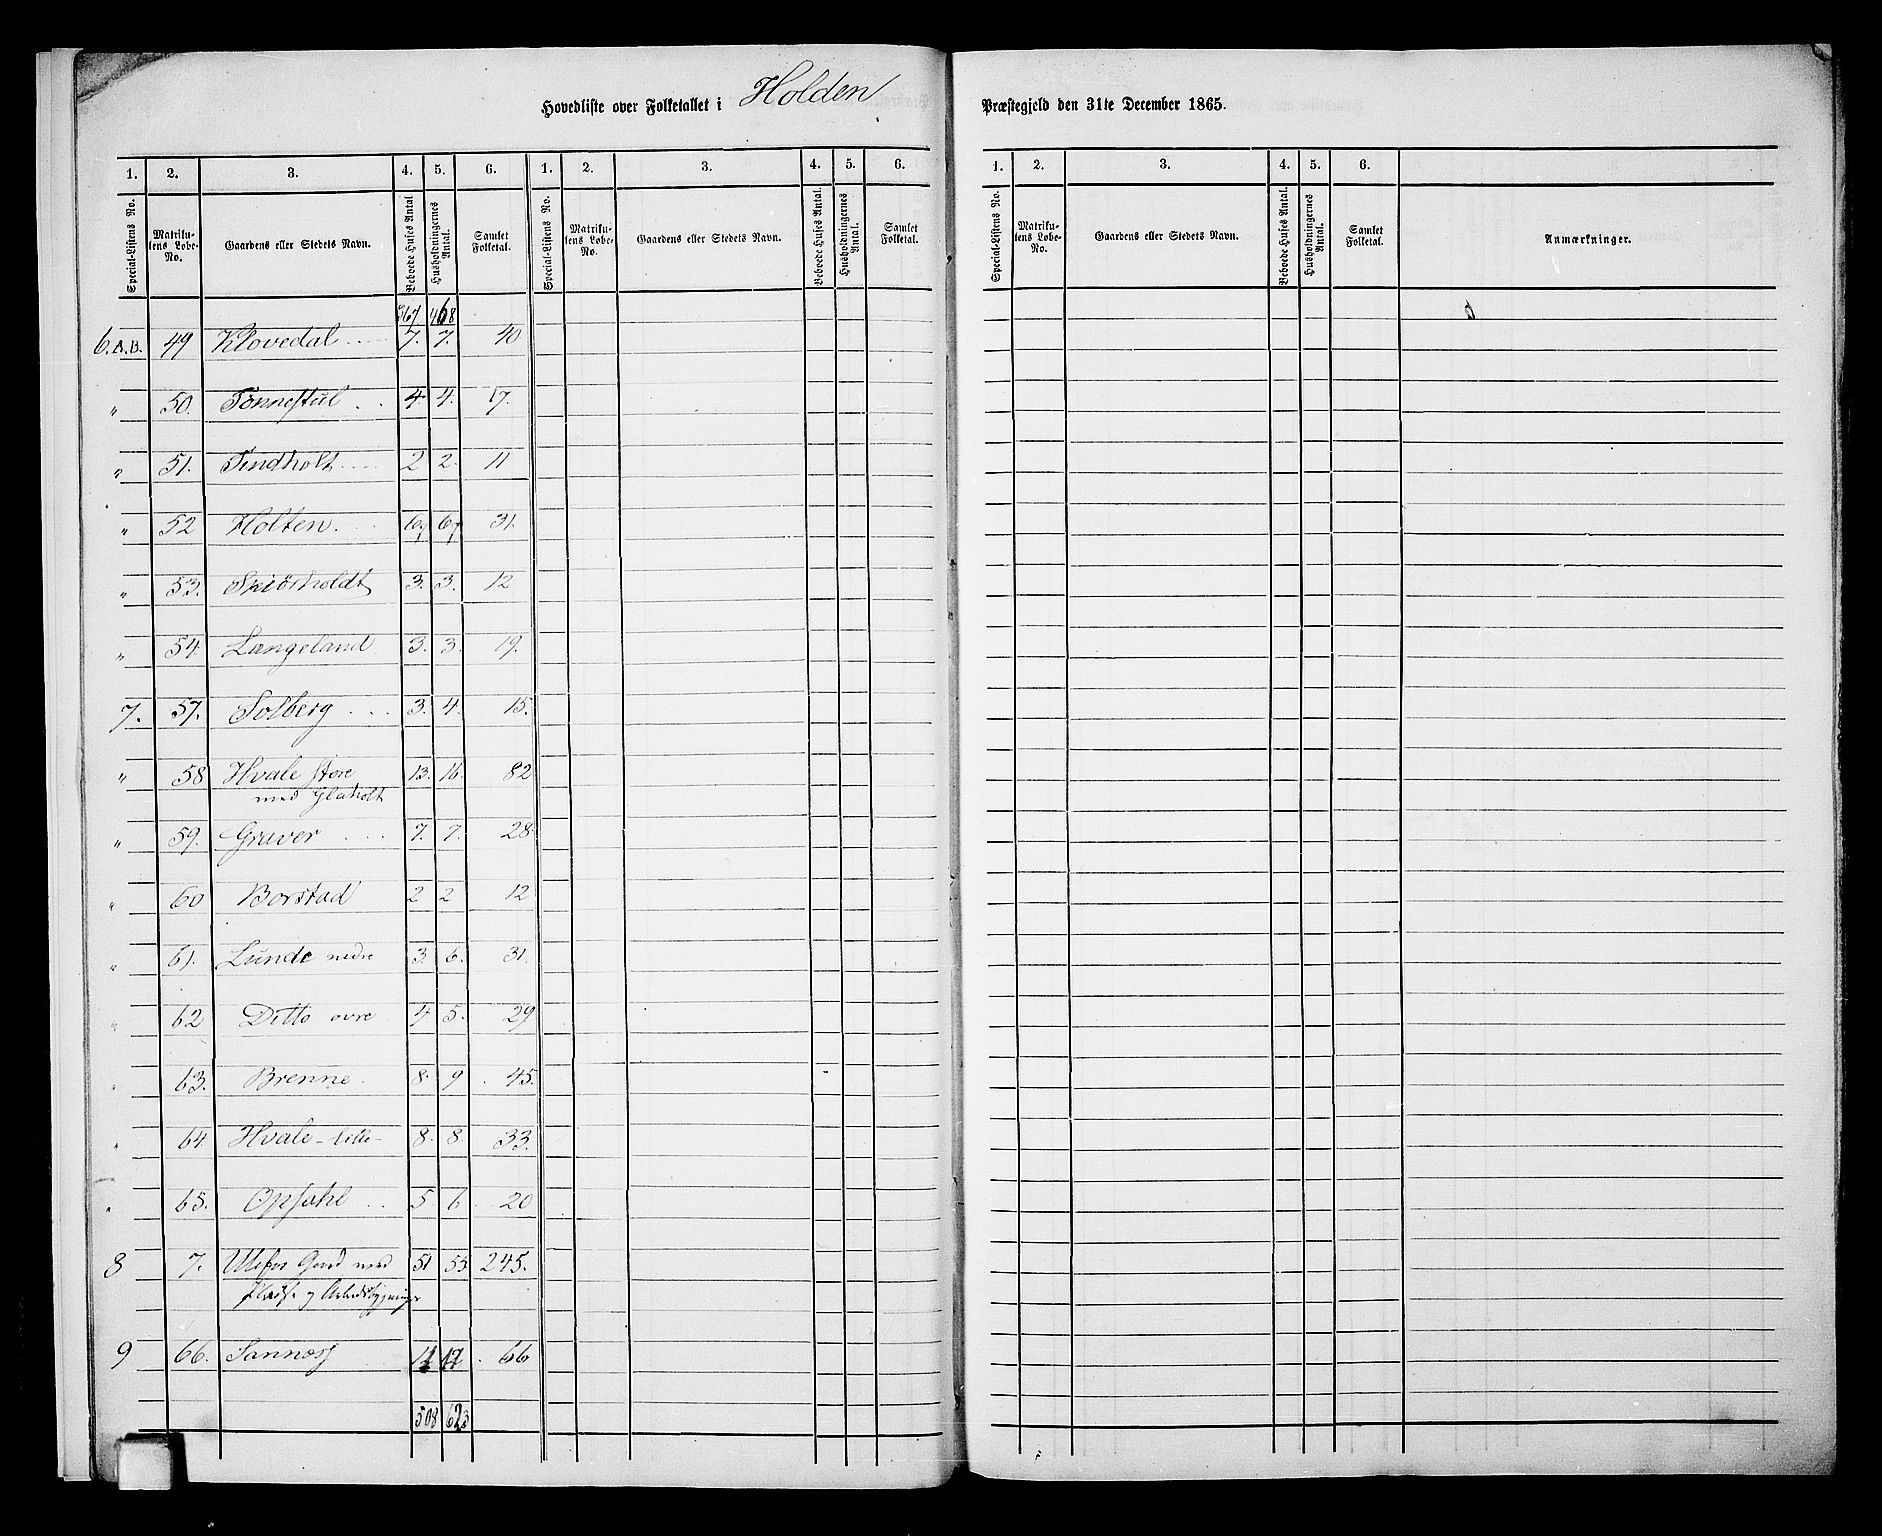 Hovedliste over Folketallet i Holden
Præstegjeld den 31te December 1865.
1. 2. 3. 4. 5. 6. 1. 2. 3. 4. 5. 6.
1. 2. 3. 4. 5. 6.
Special-Listens No. Matriku-lens Løbe-No. Gaardens eller Stedets Navn. Beboede Huses Antal Husholdningernes Antal. Samlet Folketal. Special-Listens No. Matriku-lens Løbe-No. Gaardens eller Stedets Navn. Beboede Huses Antal. Husholdningernes Antal. Samlet Folketal.
Special-Listens No. Matriku-lens Løbe-No. Gaardens eller Stedets Navn. Beboede Huses Antal. Husholdningernes Antal. Samlet Folketal. Anmærkninger.
367 468
6. A.B. 49 Klovedal 7. 7. 40
" 50. Tonnestul 4. 4. 17.
" 51. Tindholt 2 2. 11
" 52 Holten. 31.
" 53. Skiörholdt 3. 3. 12
" 54. Langeland 3. 3. 19.
7. 57. Solberg 3. 4. 15.
" 58 Hvale store 13. 16. 82
med Glaholt
" 59. Graver 7. 7. 28.
" 60 Borstad 2 2 12
" 61. Lunde nedre 3. 6. 31.
" 62 Ditto ovre 4 5. 29
" 63. Brenne. 8. 9 45.
" 64 Hvale - lille - 8. 8. 33.
" 65. Opsahl 5 6 20
8 7. Ulefos Gaard med 51 55 245.
Pladse og Arbeidsbygninger
9 66. Sannæss 66
508 623